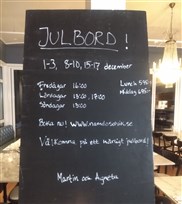 JULBORD!
1-3, 8-10, 15-17 december
Fredagar 16:00
Lördagar 13:00, 17:00
Söndagar 13:00
Lunch 545:-
Middag 645:-
Boka nu!
Vä(lkomna på ett mysigt julbord)
Martin och Agneta